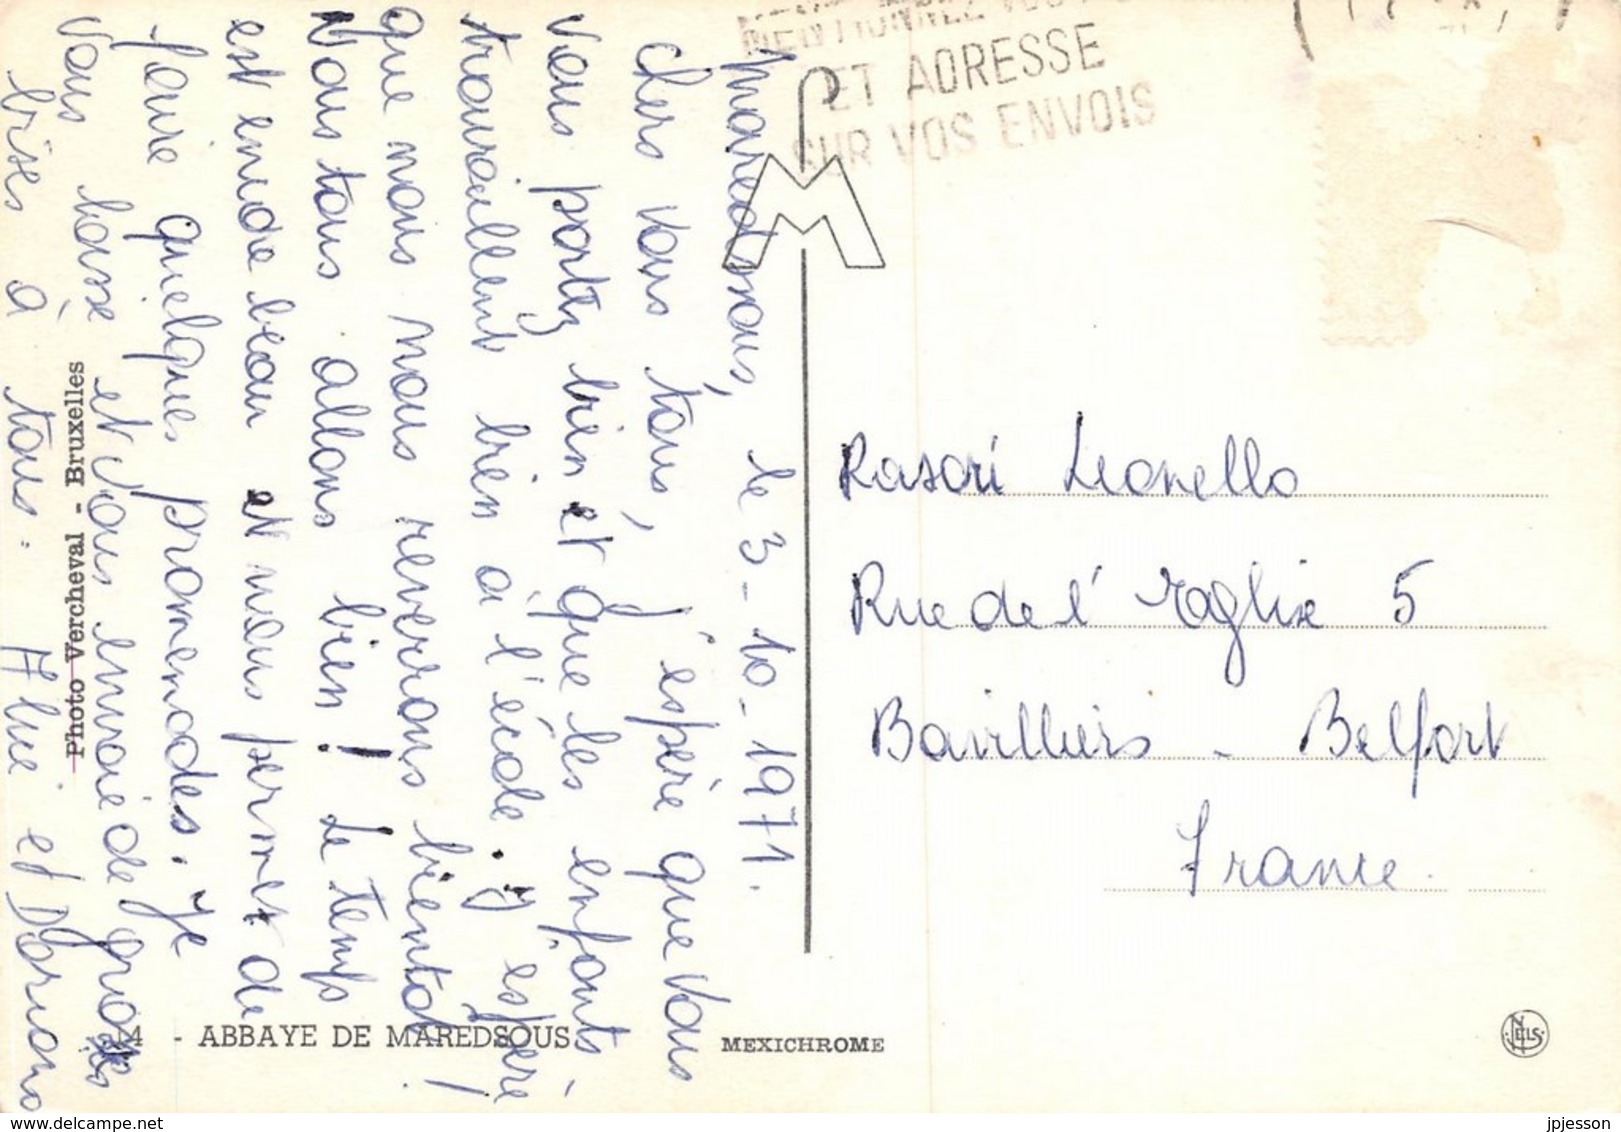 MENTIONNEZ VOS
ET ADRESSE
SUR VOS ENVOIS
Maredsous, le 3-10-1971.
Chers vous tous, j'espère que vous
vous portez bien et que les enfants
travaillent bien à l'école. J'espère
que nous nous reverrons bientôt !
Nous tous allons bien ! Le temps
est envore beau et nous permet de
faire quelques promenades. Je
vous baise et vous envoie de grosses
bises à tous.
et
Rasori Leonello
Rue de l' Eglise 5
Bavilliers - Belfort
France.
Photo Vercheval - Bruxelles
14 - ABBAYE DE MAREDSOUS
MEXICHROME
NELS
jpjesson